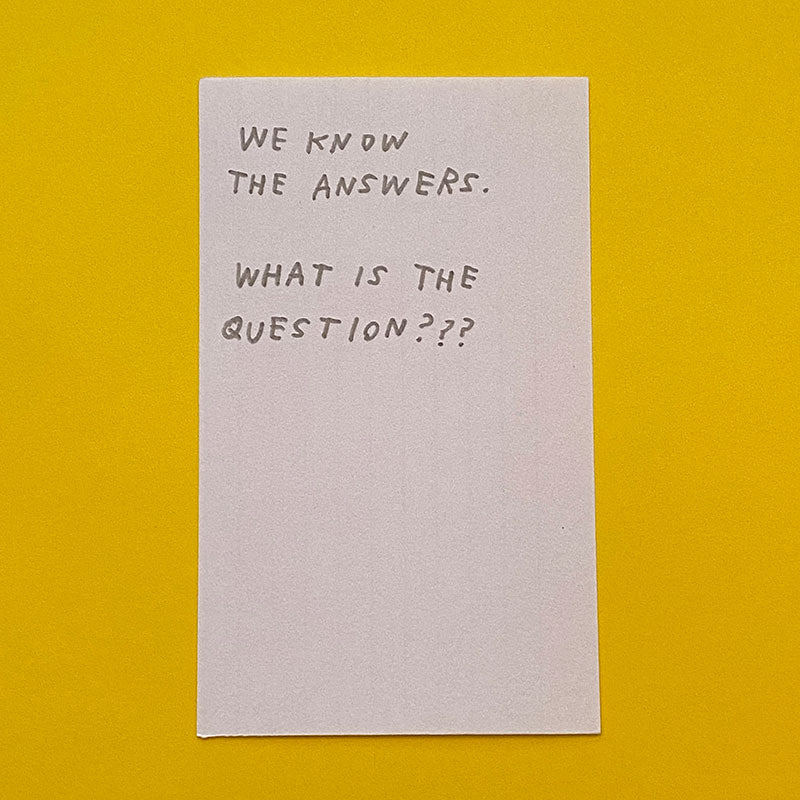 WE KNOW
THE ANSWERS.
WHAT IS THE
QUESTION???